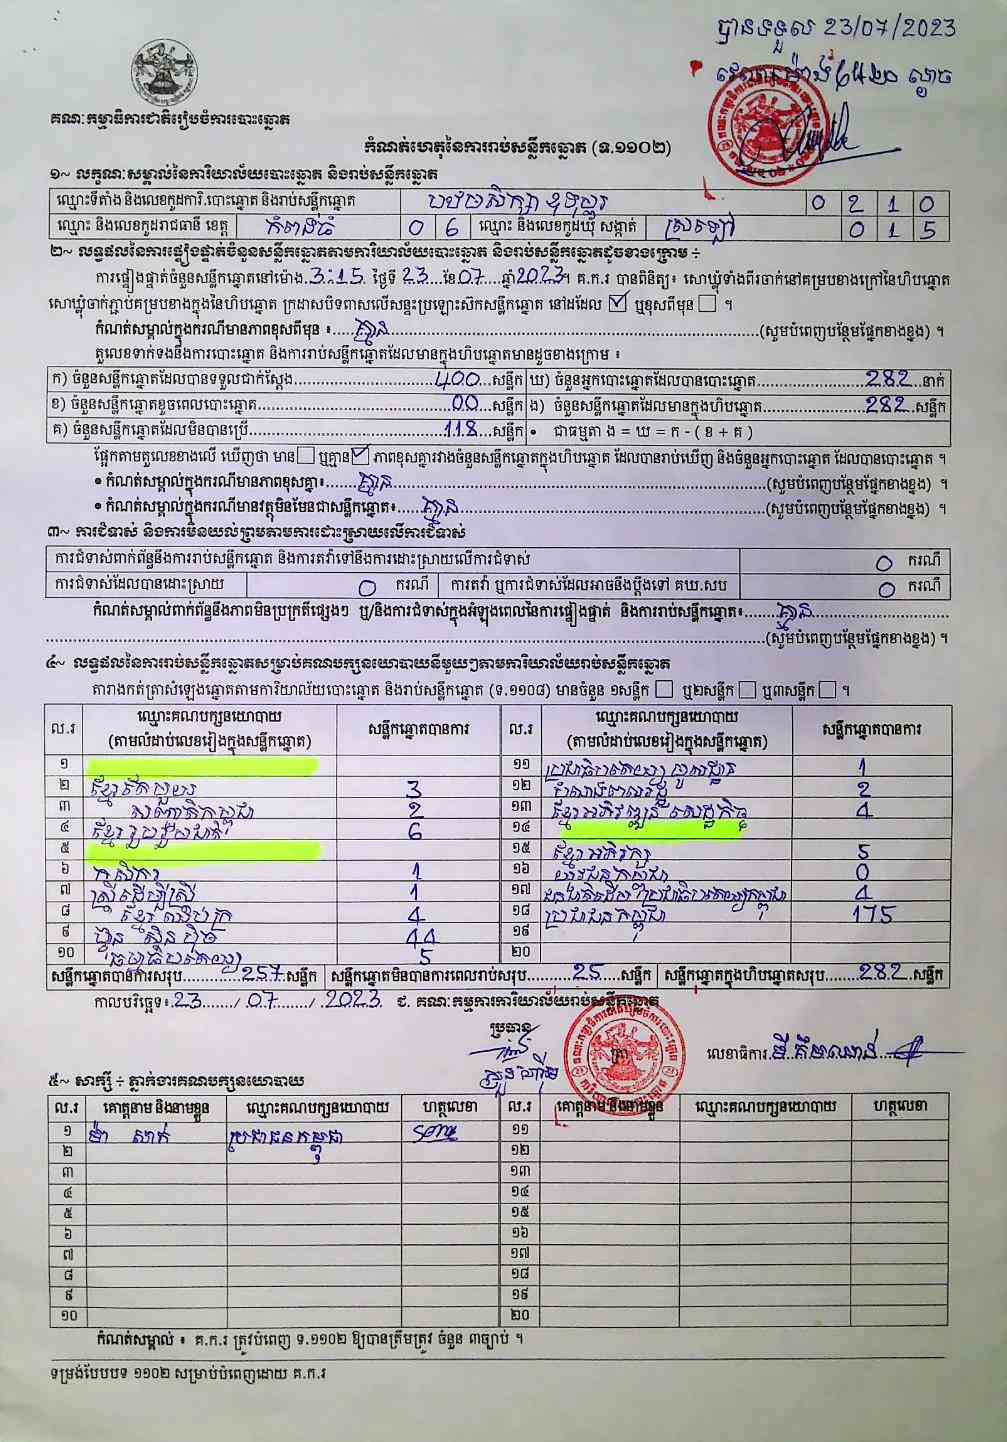 បានទទួល 23/07/2023
គណៈកម្មាធិការជាតិរៀបចំការបោះឆ្នោត
កំណត់ហេតុនៃការរាប់សន្លឹកឆ្នោត (ទ.១១០២)
១~ លក្ខណៈសម្គាល់នៃការិយាល័យបោះឆ្នោត និងរាប់សន្លឹកឆ្នោត
ឈ្មោះទីតាំង និងលេខកូដការិ.បោះឆ្នោត និងរាប់សន្លឹកឆ្នោត បឋមសិក្សា 0 2 1 0
ឈ្មោះ និងលេខកូដរាជធានី ខេត្ត កំពង់ធំ 0 6 ឈ្មោះ និងលេខកូដឃុំ សង្កាត់ 0 1 5
២~ លទ្ធផលនៃការផ្ទៀងផ្ទាត់ចំនួនសន្លឹកឆ្នោតតាមការិយាល័យបោះឆ្នោត និងរាប់សន្លឹកឆ្នោតដូចខាងក្រោម ÷
ការផ្ទៀងផ្ទាត់ចំនួនសន្លឹកឆ្នោតនៅម៉ោង 3:15 ថ្ងៃទី 23 ខែ 07 ឆ្នាំ 2023។ គ.ក.រ បានពិនិត្យ៖ សោឃ្លុំទាំងពីរចាក់នៅគម្របខាងក្រៅនៃហិបឆ្នោត
សោឃ្លុំចាក់ភ្ជាប់គម្របខាងក្នុងនៃហិបឆ្នោត ក្រដាសបិទពាសលើសន្ទះប្រឡោះស៊កសន្លឹកឆ្នោត នៅដដែល ☑ ឬខុសពីមុន ☐ ។
កំណត់សម្គាល់ក្នុងករណីមានភាពខុសពីមុន ៖ គ្មាន (សូមបំពេញបន្ថែមផ្នែកខាងខ្នង) ។
តួលេខទាក់ទងនឹងការបោះឆ្នោត និងការរាប់សន្លឹកឆ្នោតដែលមានក្នុងហិបឆ្នោតមានដូចខាងក្រោម ៖
ក) ចំនួនសន្លឹកឆ្នោតដែលបានទទួលជាក់ស្តែង 400 សន្លឹក ឃ) ចំនួនអ្នកបោះឆ្នោតដែលបានបោះឆ្នោត 282 នាក់
ខ) ចំនួនសន្លឹកឆ្នោតខូចពេលបោះឆ្នោត 00 សន្លឹក ង) ចំនួនសន្លឹកឆ្នោតដែលមានក្នុងហិបឆ្នោត 282 សន្លឹក
គ) ចំនួនសន្លឹកឆ្នោតដែលមិនបានប្រើ 118 សន្លឹក • ជាធម្មតា ង = ឃ = ក - ( ខ + គ )
ផ្អែកតាមតួលេខខាងលើ ឃើញថា មាន ☐ ឬគ្មាន ☑ ភាពខុសគ្នារវាងចំនួនសន្លឹកឆ្នោតក្នុងហិបឆ្នោត ដែលបានរាប់ឃើញ និងចំនួនអ្នកបោះឆ្នោត ដែលបានបោះឆ្នោត ។
• កំណត់សម្គាល់ក្នុងករណីមានភាពខុសគ្នា៖ គ្មាន (សូមបំពេញបន្ថែមផ្នែកខាងខ្នង) ។
• កំណត់សម្គាល់ក្នុងករណីមានវត្ថុមិនមែនជាសន្លឹកឆ្នោត៖ គ្មាន (សូមបំពេញបន្ថែមផ្នែកខាងខ្នង) ។
៣~ ការជំទាស់ និងការមិនយល់ព្រមតាមការដោះស្រាយលើការជំទាស់
ការជំទាស់ពាក់ព័ន្ធនឹងការរាប់សន្លឹកឆ្នោត និងការតវ៉ាទៅនឹងការដោះស្រាយលើការជំទាស់ 0 ករណី
ការជំទាស់ដែលបានដោះស្រាយ 0 ករណី ការតវ៉ា ឬការជំទាស់ដែលអាចនឹងប្តឹងទៅ គឃ.សប 0 ករណី
កំណត់សម្គាល់ពាក់ព័ន្ធនឹងភាពមិនប្រក្រតីផ្សេងៗ ឬ/និងការជំទាស់ក្នុងអំឡុងពេលនៃការផ្ទៀងផ្ទាត់ និងការរាប់សន្លឹកឆ្នោត៖ គ្មាន
(សូមបំពេញបន្ថែមផ្នែកខាងខ្នង) ។
៤~ លទ្ធផលនៃការរាប់សន្លឹកឆ្នោតសម្រាប់គណបក្សនយោបាយនីមួយៗតាមការិយាល័យរាប់សន្លឹកឆ្នោត
តារាងកត់ត្រាសំឡេងឆ្នោតតាមការិយាល័យបោះឆ្នោត និងរាប់សន្លឹកឆ្នោត (ទ.១១០៨) មានចំនួន ១សន្លឹក ☐ ឬ២សន្លឹក ☐ ឬ៣សន្លឹក ☐ ។
ល.រ ឈ្មោះគណបក្សនយោបាយ (តាមលំដាប់លេខរៀងក្នុងសន្លឹកឆ្នោត) សន្លឹកឆ្នោតបានការ ល.រ ឈ្មោះគណបក្សនយោបាយ (តាមលំដាប់លេខរៀងក្នុងសន្លឹកឆ្នោត) សន្លឹកឆ្នោតបានការ
១ ១១ ប្រជាធិបតេយ្យមូលដ្ឋាន 1
២ 3 ១២ 2
៣ សញ្ជាតិកម្ពុជា 2 ១៣ ខ្មែរអភិវឌ្ឍន៍សេដ្ឋកិច្ច 4
៤ ខ្មែររួបរួមជាតិ 6 ១៤
៥ ១៥ ខ្មែរអភិរក្ស 5
៦ កសិករ 1 ១៦ យុវជនកម្ពុជា 0
៧ ស្ត្រីដើម្បីស្ត្រី 1 ១៧ 4
៨ 4 ១៨ ប្រជាជនកម្ពុជា 175
៩ ហ៊្វុនស៊ិនប៉ិច 44 ១៩
១០ ធម្មាធិបតេយ្យ 5 ២០
សន្លឹកឆ្នោតបានការសរុប 257 សន្លឹក សន្លឹកឆ្នោតមិនបានការពេលរាប់សរុប 25 សន្លឹក សន្លឹកឆ្នោតក្នុងហិបឆ្នោតសរុប 282 សន្លឹក
កាលបរិច្ឆេទ៖ 23 / 07 / 2023 ជ. គណៈកម្មការការិយាល័យរាប់សន្លឹកឆ្នោត
ប្រធាន ត្រា លេខាធិការ
៥~ សាក្សី ÷ ភ្នាក់ងារគណបក្សនយោបាយ
ល.រ គោត្តនាម និងនាមខ្លួន ឈ្មោះគណបក្សនយោបាយ ហត្ថលេខា ល.រ គោត្តនាម និងនាមខ្លួន ឈ្មោះគណបក្សនយោបាយ ហត្ថលេខា
១ ម៉ា សាក់ ប្រជាជនកម្ពុជា ១១
២ ១២
៣ ១៣
៤ ១៤
៥ ១៥
៦ ១៦
៧ ១៧
៨ ១៨
៩ ១៩
១០ ២០
កំណត់សម្គាល់ ៖ គ.ក.រ ត្រូវបំពេញ ទ.១១០២ ឱ្យបានត្រឹមត្រូវ ចំនួន ៣ច្បាប់ ។
ទម្រង់បែបបទ ១១០២ សម្រាប់បំពេញដោយ គ.ក.រ